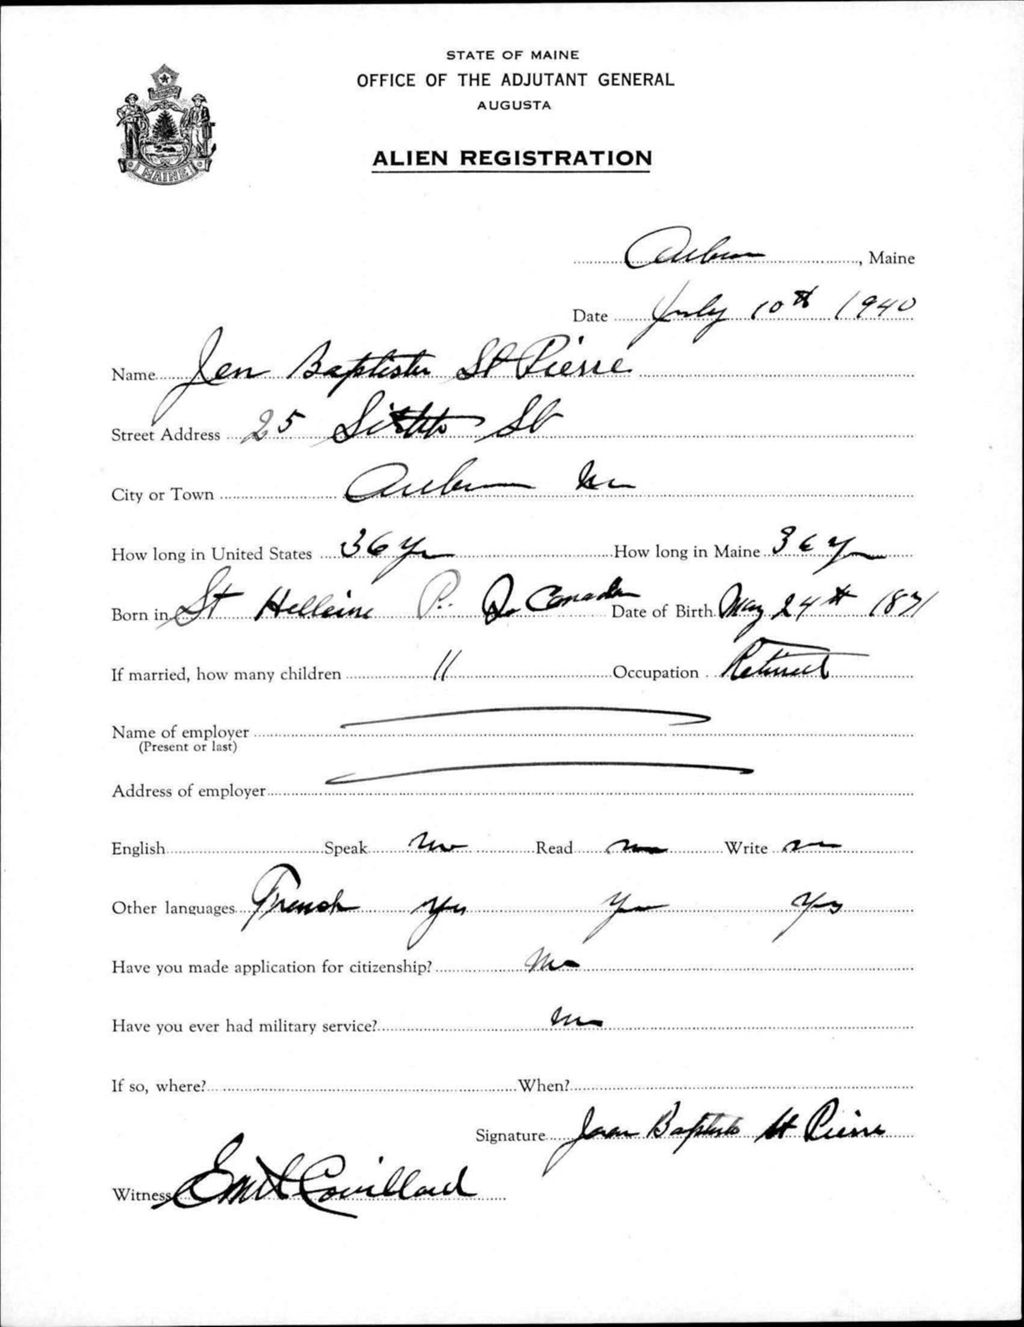 STATE OF MAINE
OFFICE OF THE ADJUTANT GENERAL
AUGUSTA
ALIEN REGISTRATION
MAINE
Auburn, Maine
Date July 10th 1940
Name Jen Baptiste St Pierre
Street Address 25 Sixth St
City or Town Auburn Me
How long in United States 36 Yr How long in Maine 36 Yr
Born in St Helleine P. Q. Canada Date of Birth May 24th 1871
If married, how many children 11 Occupation Retired
Name of employer
(Present or last)
Address of employer
English Speak no Read no Write no
Other languages French Yes Yes Yes
Have you made application for citizenship? No
Have you ever had military service? No
If so, where? When?
Signature Jean Baptiste St Pierre
Witness Emil Couillard